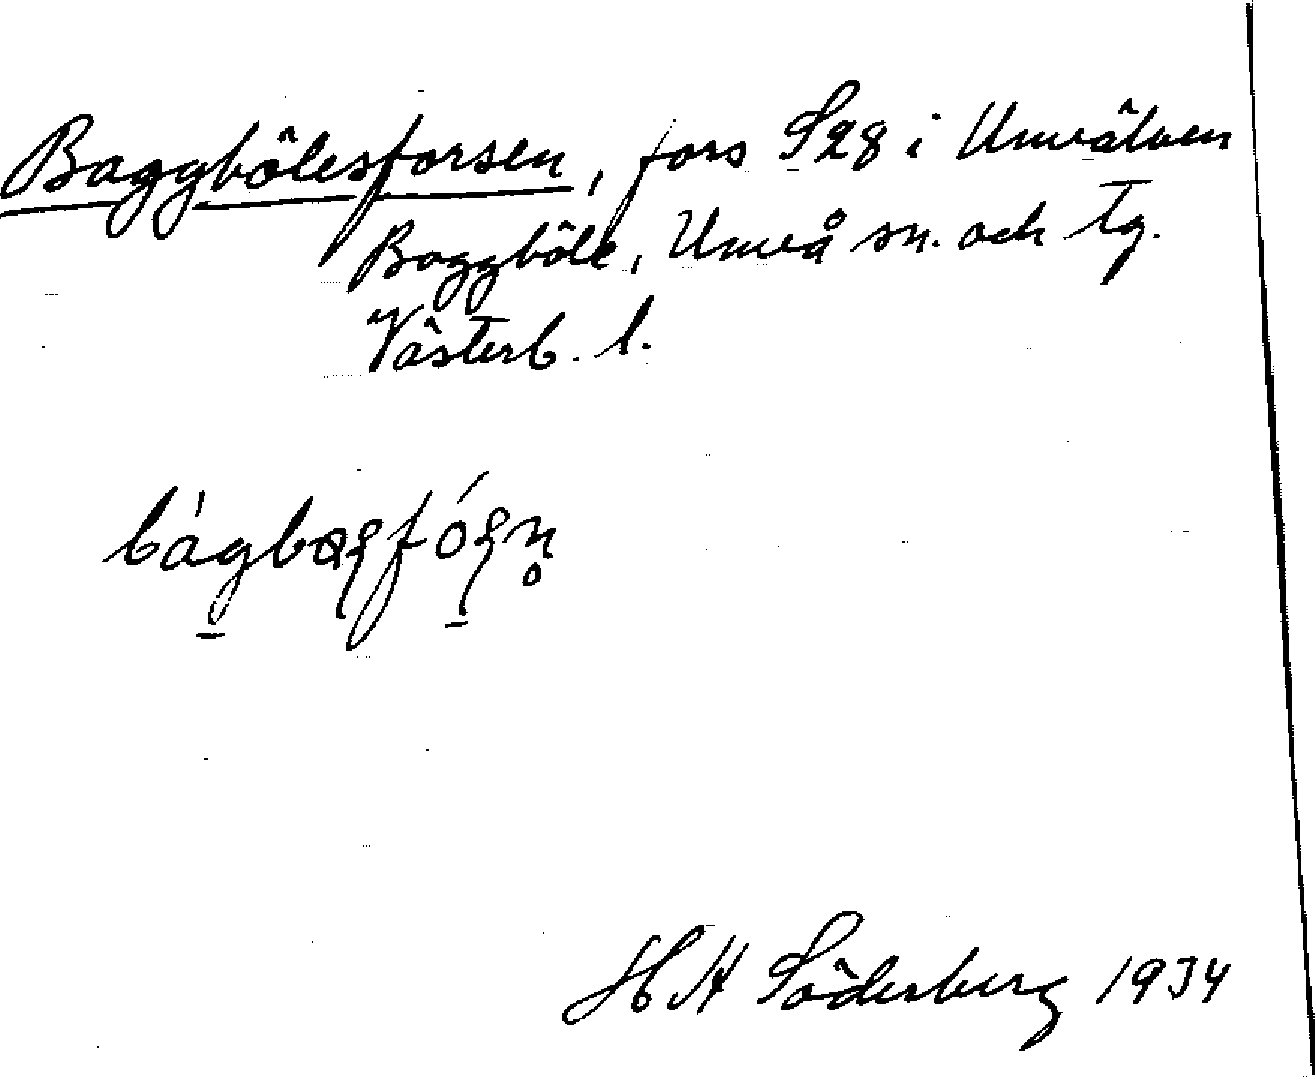 Baggbölesforsen, fors S28 i Umeälven
Baggböle, Umeå sn. och tg.
Västerb. l.
H H Söderberg 1934